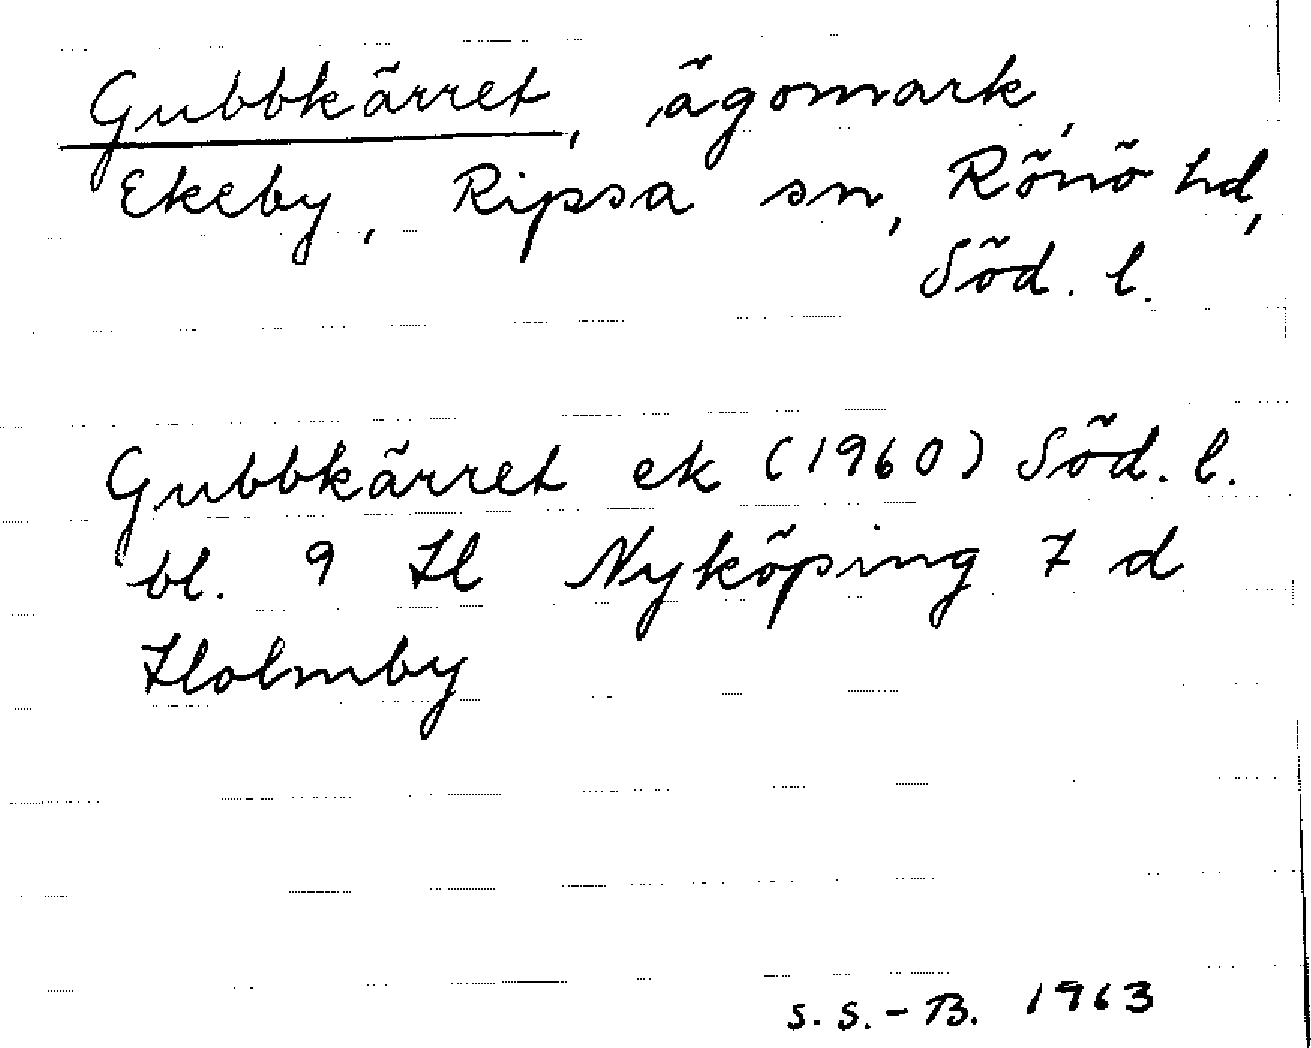 Gubbkärret, ägomark,
Ekeby, Ripsa sn, Rönö hd,
Söd. l.
Gubbkärret ek (1960) Söd. l.
bl. 9 H Nyköping 7 d
Holmby
S. S.-B. 1963